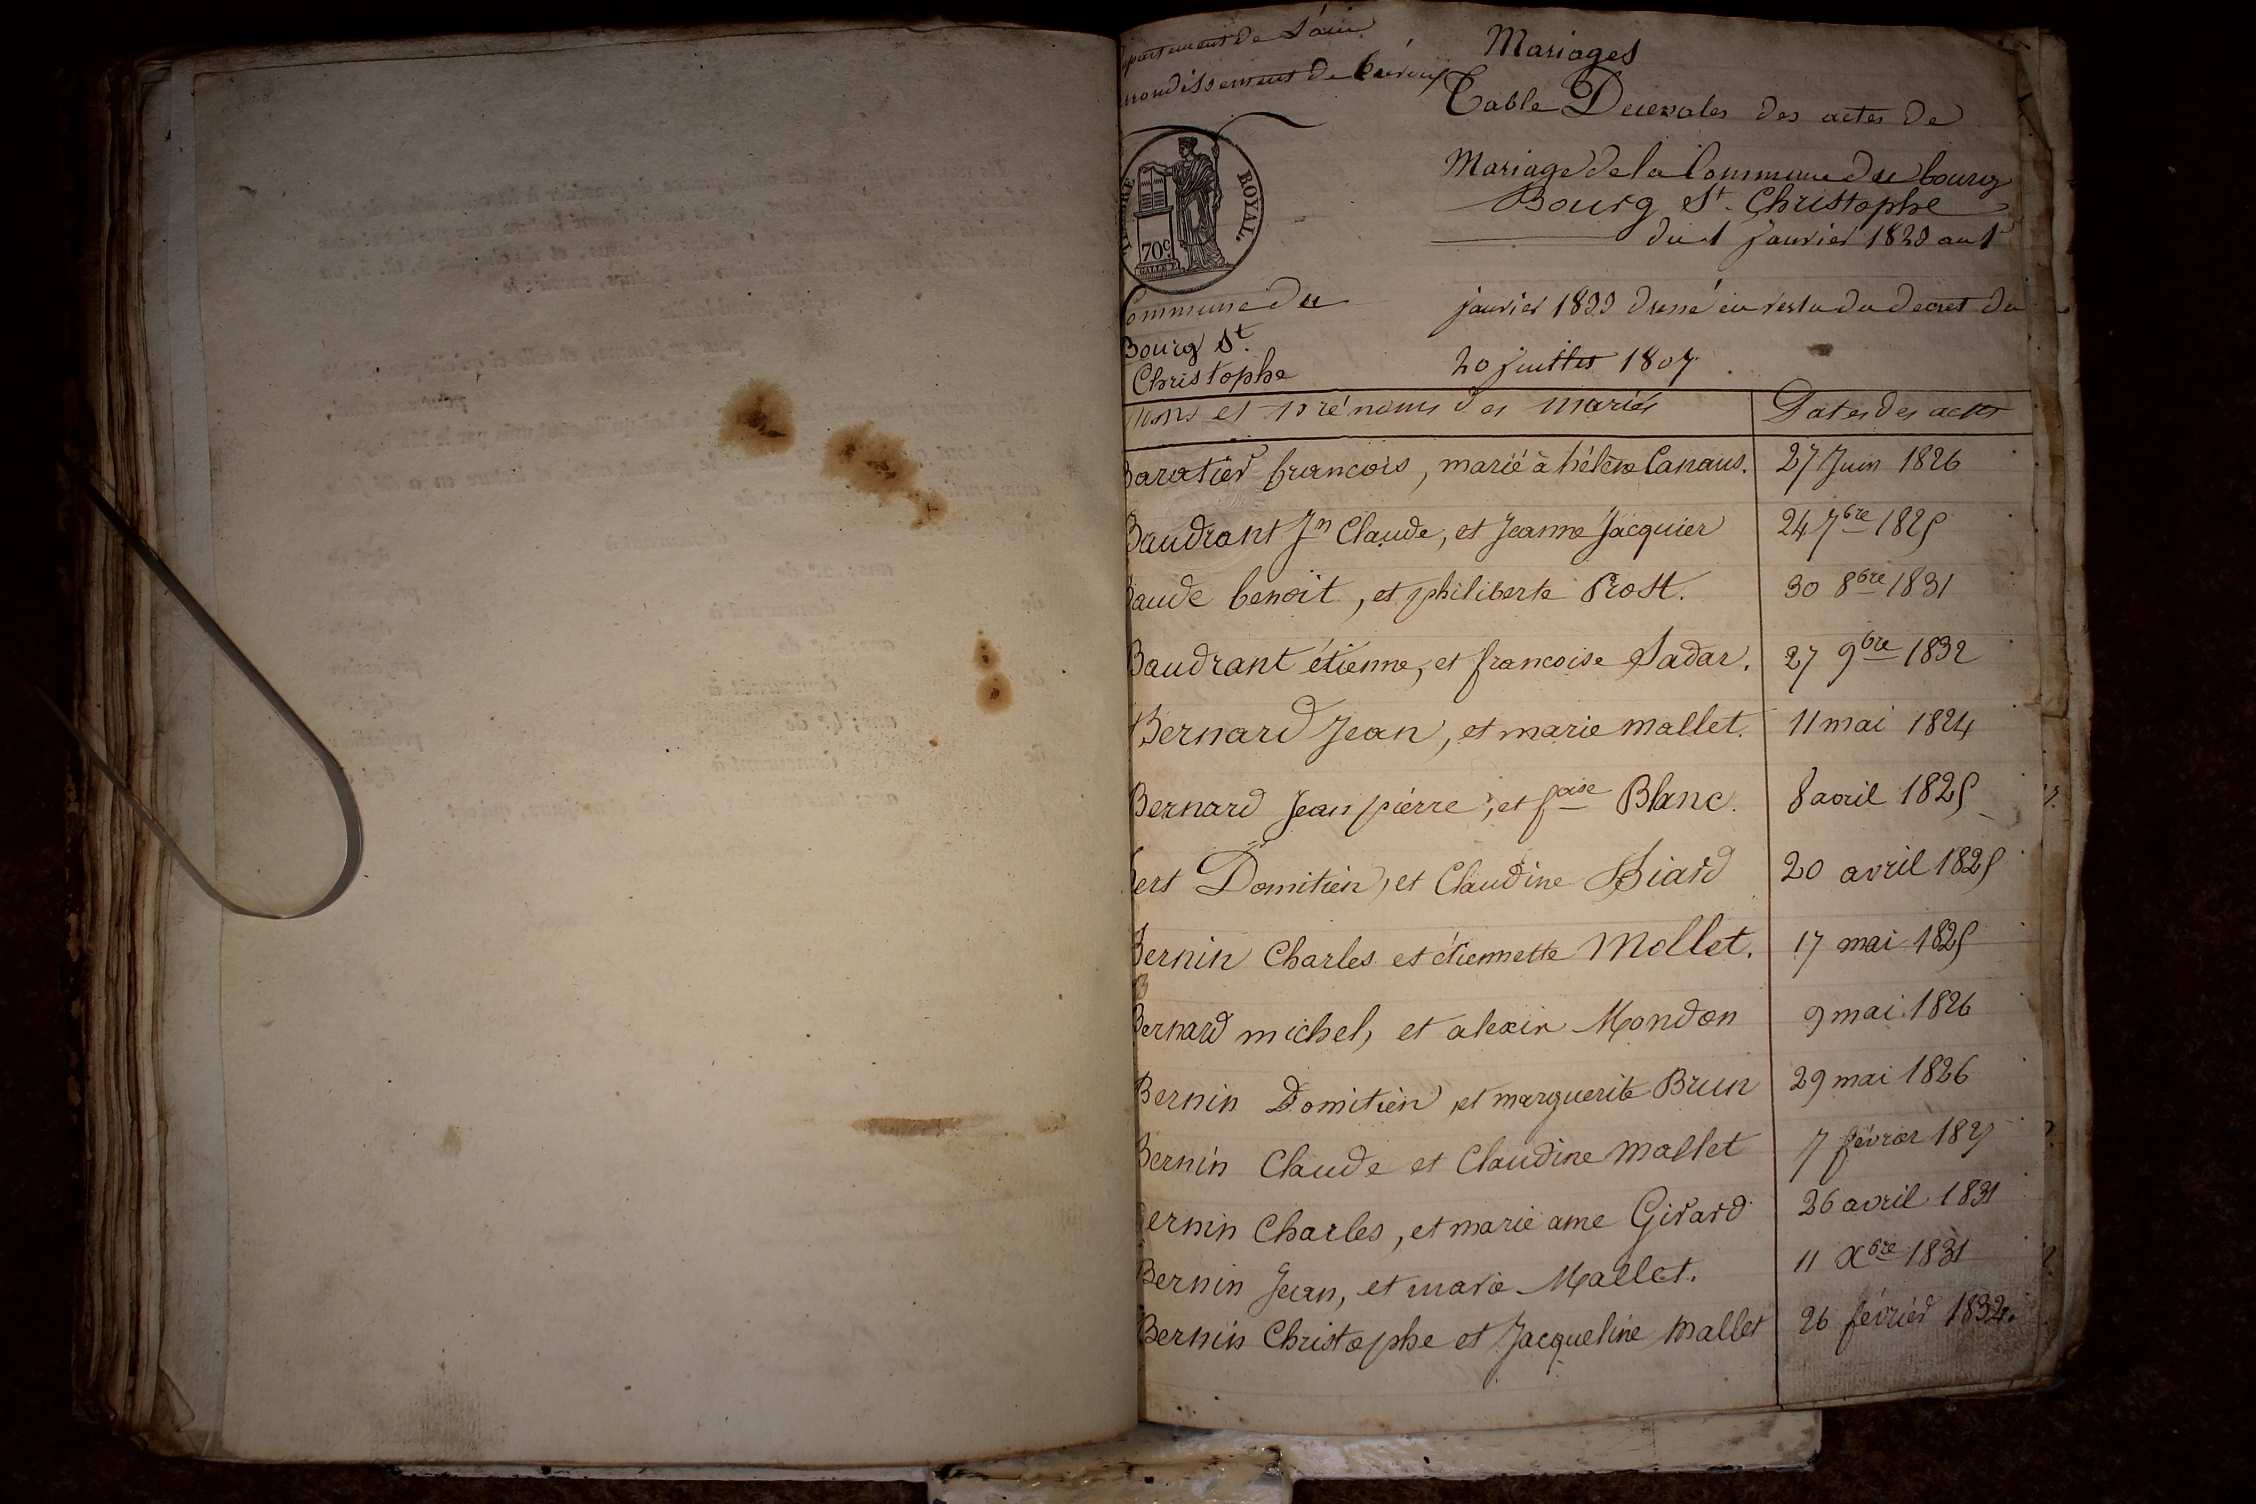 Mariages
Département de l'ain
arrondissement de trévoux
Table Decenales des actes de
Mariage de la Commune du bourg
Bourg St. Christophe
du 1 janvier 1823 au 1er
TIMBRE ROYAL.
70c
Commune du
Bourg St.
Christophe
janvier 1833 dressé en vertu du decret du
20 juillet 1807.
Noms et prénoms des mariés
Dates des actes
Baratier francois, marié à hélène Canaus. 27 Juin 1826
Baudrant Jn Claude, et Jeanne Jacquier 24 7bre 1825
Baude benoit, et philiberte Prost. 30 8bre 1831
Baudrant étienne, et francoise Sadar. 27 9bre 1832
Bernard Jean, et marie mallet. 11 mai 1824
Bernard Jean pierre, et foise Blanc. 8 avril 1825
Bert Domitien, et Claudine 20 avril 1825
Bernin Charles et étiennette Mollet. 17 mai 1825
Bernard michel, et alexin Mondon 9 mai 1826
Bernin Domitien et marguerite Brun 29 mai 1826
Bernin Claude et Claudine mallet 7 février
Bernin Charles, et marie ane Girard 26 avril 1831
Bernin Jean, et marie Mallet. 11 Xbre 1831
Bernin Christophe et Jacqueline mallet 26 février